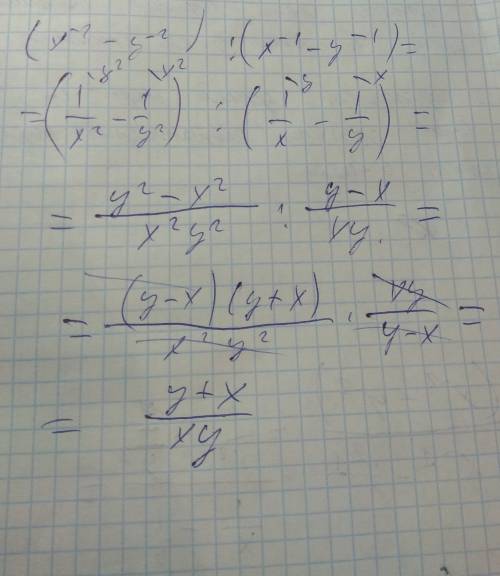 (x⁻² - y⁻²) : (x⁻¹ - y⁻¹) =
= (1/x² \y² - 1/y² \x²) : (1/x \y - 1/y \x) =
= (y² - x²)/(x²y²) : (y - x)/(xy) =
= ((y-x)(y+x))/(x²y²) · (xy)/(y-x) =
= (y+x)/(xy)